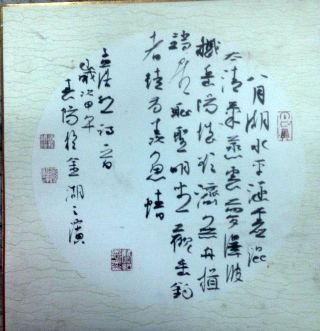 八月湖水平涵虛混
太清氣蒸雲夢澤波
撼岳陽城欲濟無舟楫
端居恥聖明坐觀垂釣
者徒有羨魚情
孟浩然詩一首
歲次甲午
於金湖之濱